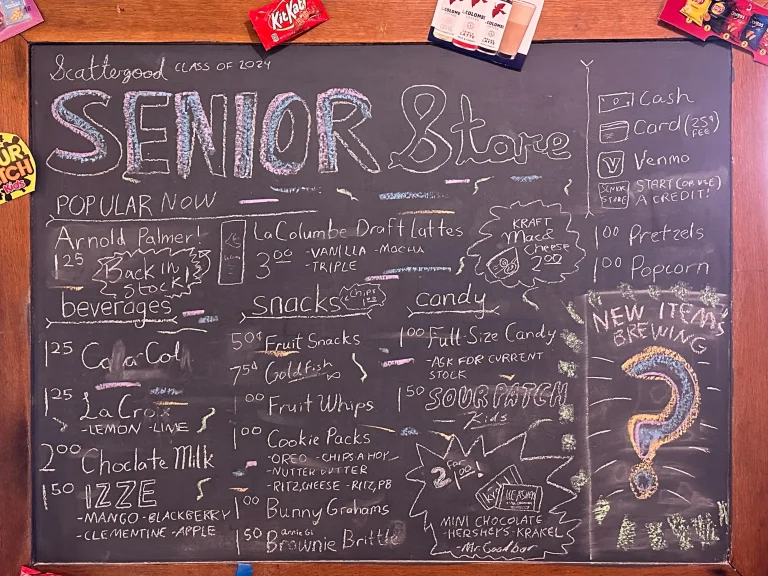 Scattergood CLASS OF 2024
SENIOR Store
Cash
Card (25¢ FEE)
Venmo
SENIOR STORE
START (OR USE)
A CREDIT!
POPULAR NOW
Arnold Palmer!
1.25 Back IN STOCK!
LaColombe Draft Lattes
3.00 -VANILLA -MOCHA
-TRIPLE
KRAFT
Mac &
Cheese
2.00
1.00 Pretzels
1.00 Popcorn
beverages
1.25 Coca-Cola
1.25 LaCroix
-LEMON -LIME
2.00 Choclate Milk
1.50 IZZE
-MANGO -BLACKBERRY
-CLEMENTINE -APPLE
snacks
Chips 1.00
50¢ Fruit Snacks
75¢ Goldfish
1.00 Fruit Whips
1.00 Cookie Packs
-OREO -CHIPS AHOY
-NUTTER BUTTER
-RITZ, CHEESE -RITZ, PB
1.00 Bunny Grahams
1.50 Brownie Brittle
candy
1.00 Full-Size Candy
-ASK FOR CURRENT
STOCK
1.50 SOUR PATCH
Kids
2 For 1.00!
MINI CHOCOLATE
-HERSHEYS -KRAKEL
-Mr. Goodbar
NEW ITEMS
BREWING
?
KitKat